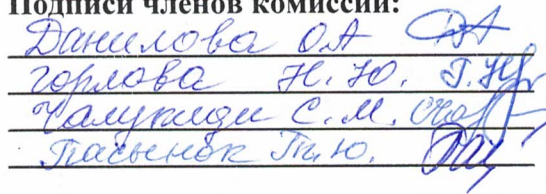 Подписи членов комиссии:
Данилова О.А
Горлова Н.Ю.
С.М.
Пасынок Т.Ю.